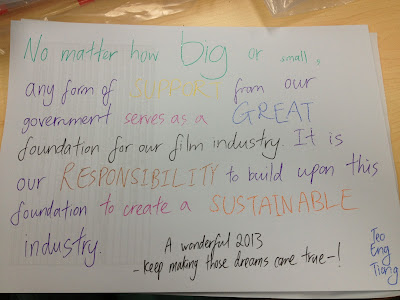 No matter how big or small,
any form of SUPPORT from our
government serves as a GREAT
foundation for our film industry. It is
our RESPONSIBILITY to build upon this
foundation to create a SUSTAINABLE
industry.
A wonderful 2013
- keep making those dreams come true -!
Teo
Eng
Tiong